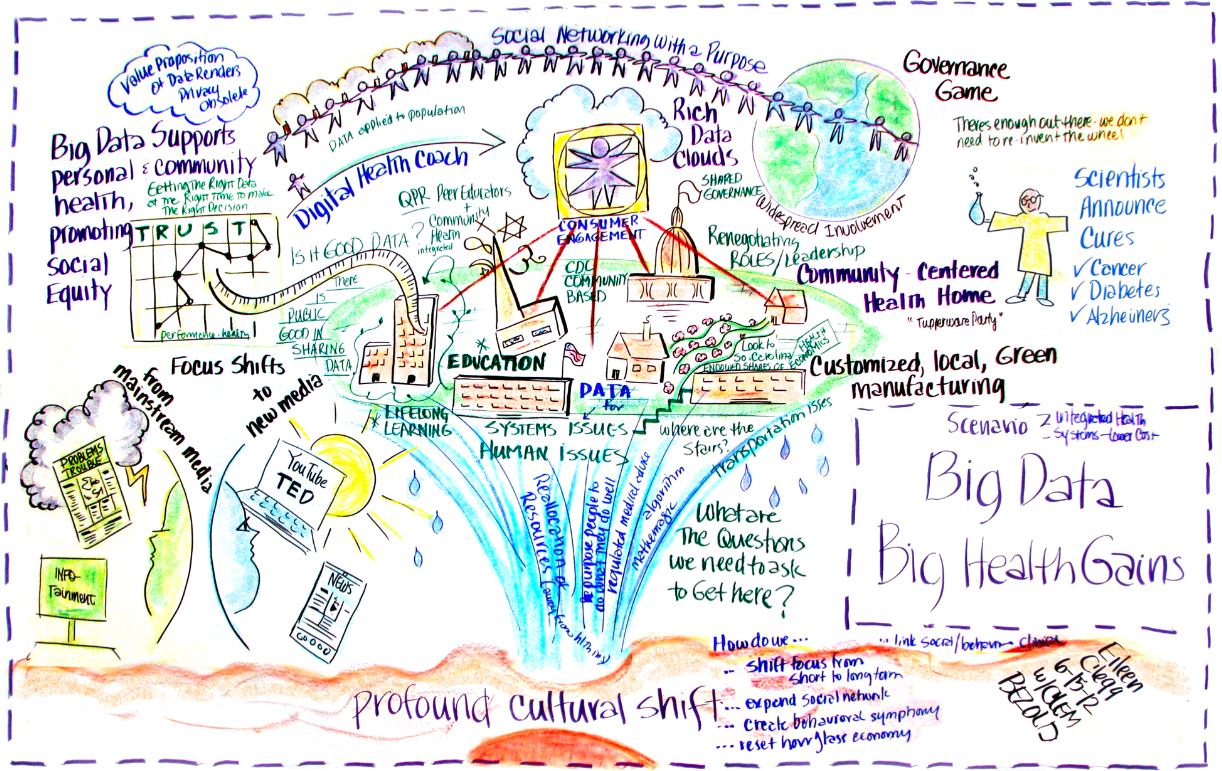 Social Networking with a Purpose
Value Proposition
of Data Renders
Privacy
Obsolete
Big Data Supports
personal & community
health,
promoting
Social
Equity
Getting The Right Data
at the Right Time to Make
The Right Decision
TRUST
performance - health
DATA applied to population
Digital Health Coach
QPR Peer Educators
+
Community
Health
integrated
Is it GOOD DATA?
There
is
PUBLIC
GOOD IN
SHARING
DATA
CONSUMER
ENGAGEMENT
Rich
Data
Clouds
SHARED
GOVERNANCE
Widespread Involvement
Governance
Game
Theres enough out there - we don't
need to re-invent the wheel
Scientists
Announce
Cures
✓ Cancer
✓ Diabetes
✓ Alzheimers
Renegotiating
ROLES/Leadership
Community - Centered
Health Home
"Tupperware Party"
Customized, local, Green
manufacturing
CDC
COMMUNITY
BASED
EDUCATION
DATA
for
Look to
So. Carolina
ENDOWED SHARES OF HEALTH
ECONOMICS
LIFELONG
LEARNING
SYSTEMS ISSUES
HUMAN ISSUES
where are the
Stairs?
Transportation
Focus Shifts
from
mainstream media
to
new media
PROBLEMS
TROUBLE
INFO-
TAINMENT
YouTube
TED
NEWS
Reallocation of
Resources
Re purpose people to
do what they do well
regulated medical
algorithm
mathemagic
What are
The Questions
we need to ask
to Get here?
Scenario 2
integrated Health
Systems - Lower Cost
Big Data
Big Health Gains
profound cultural shift
How do we...
... link social/behav clinical
... shift focus from
short to long term
... expand social network
... create behavioral symphony
... reset hourglass economy
Eileen
Clegg
6-15-12
w/CLEM
BEZOLD